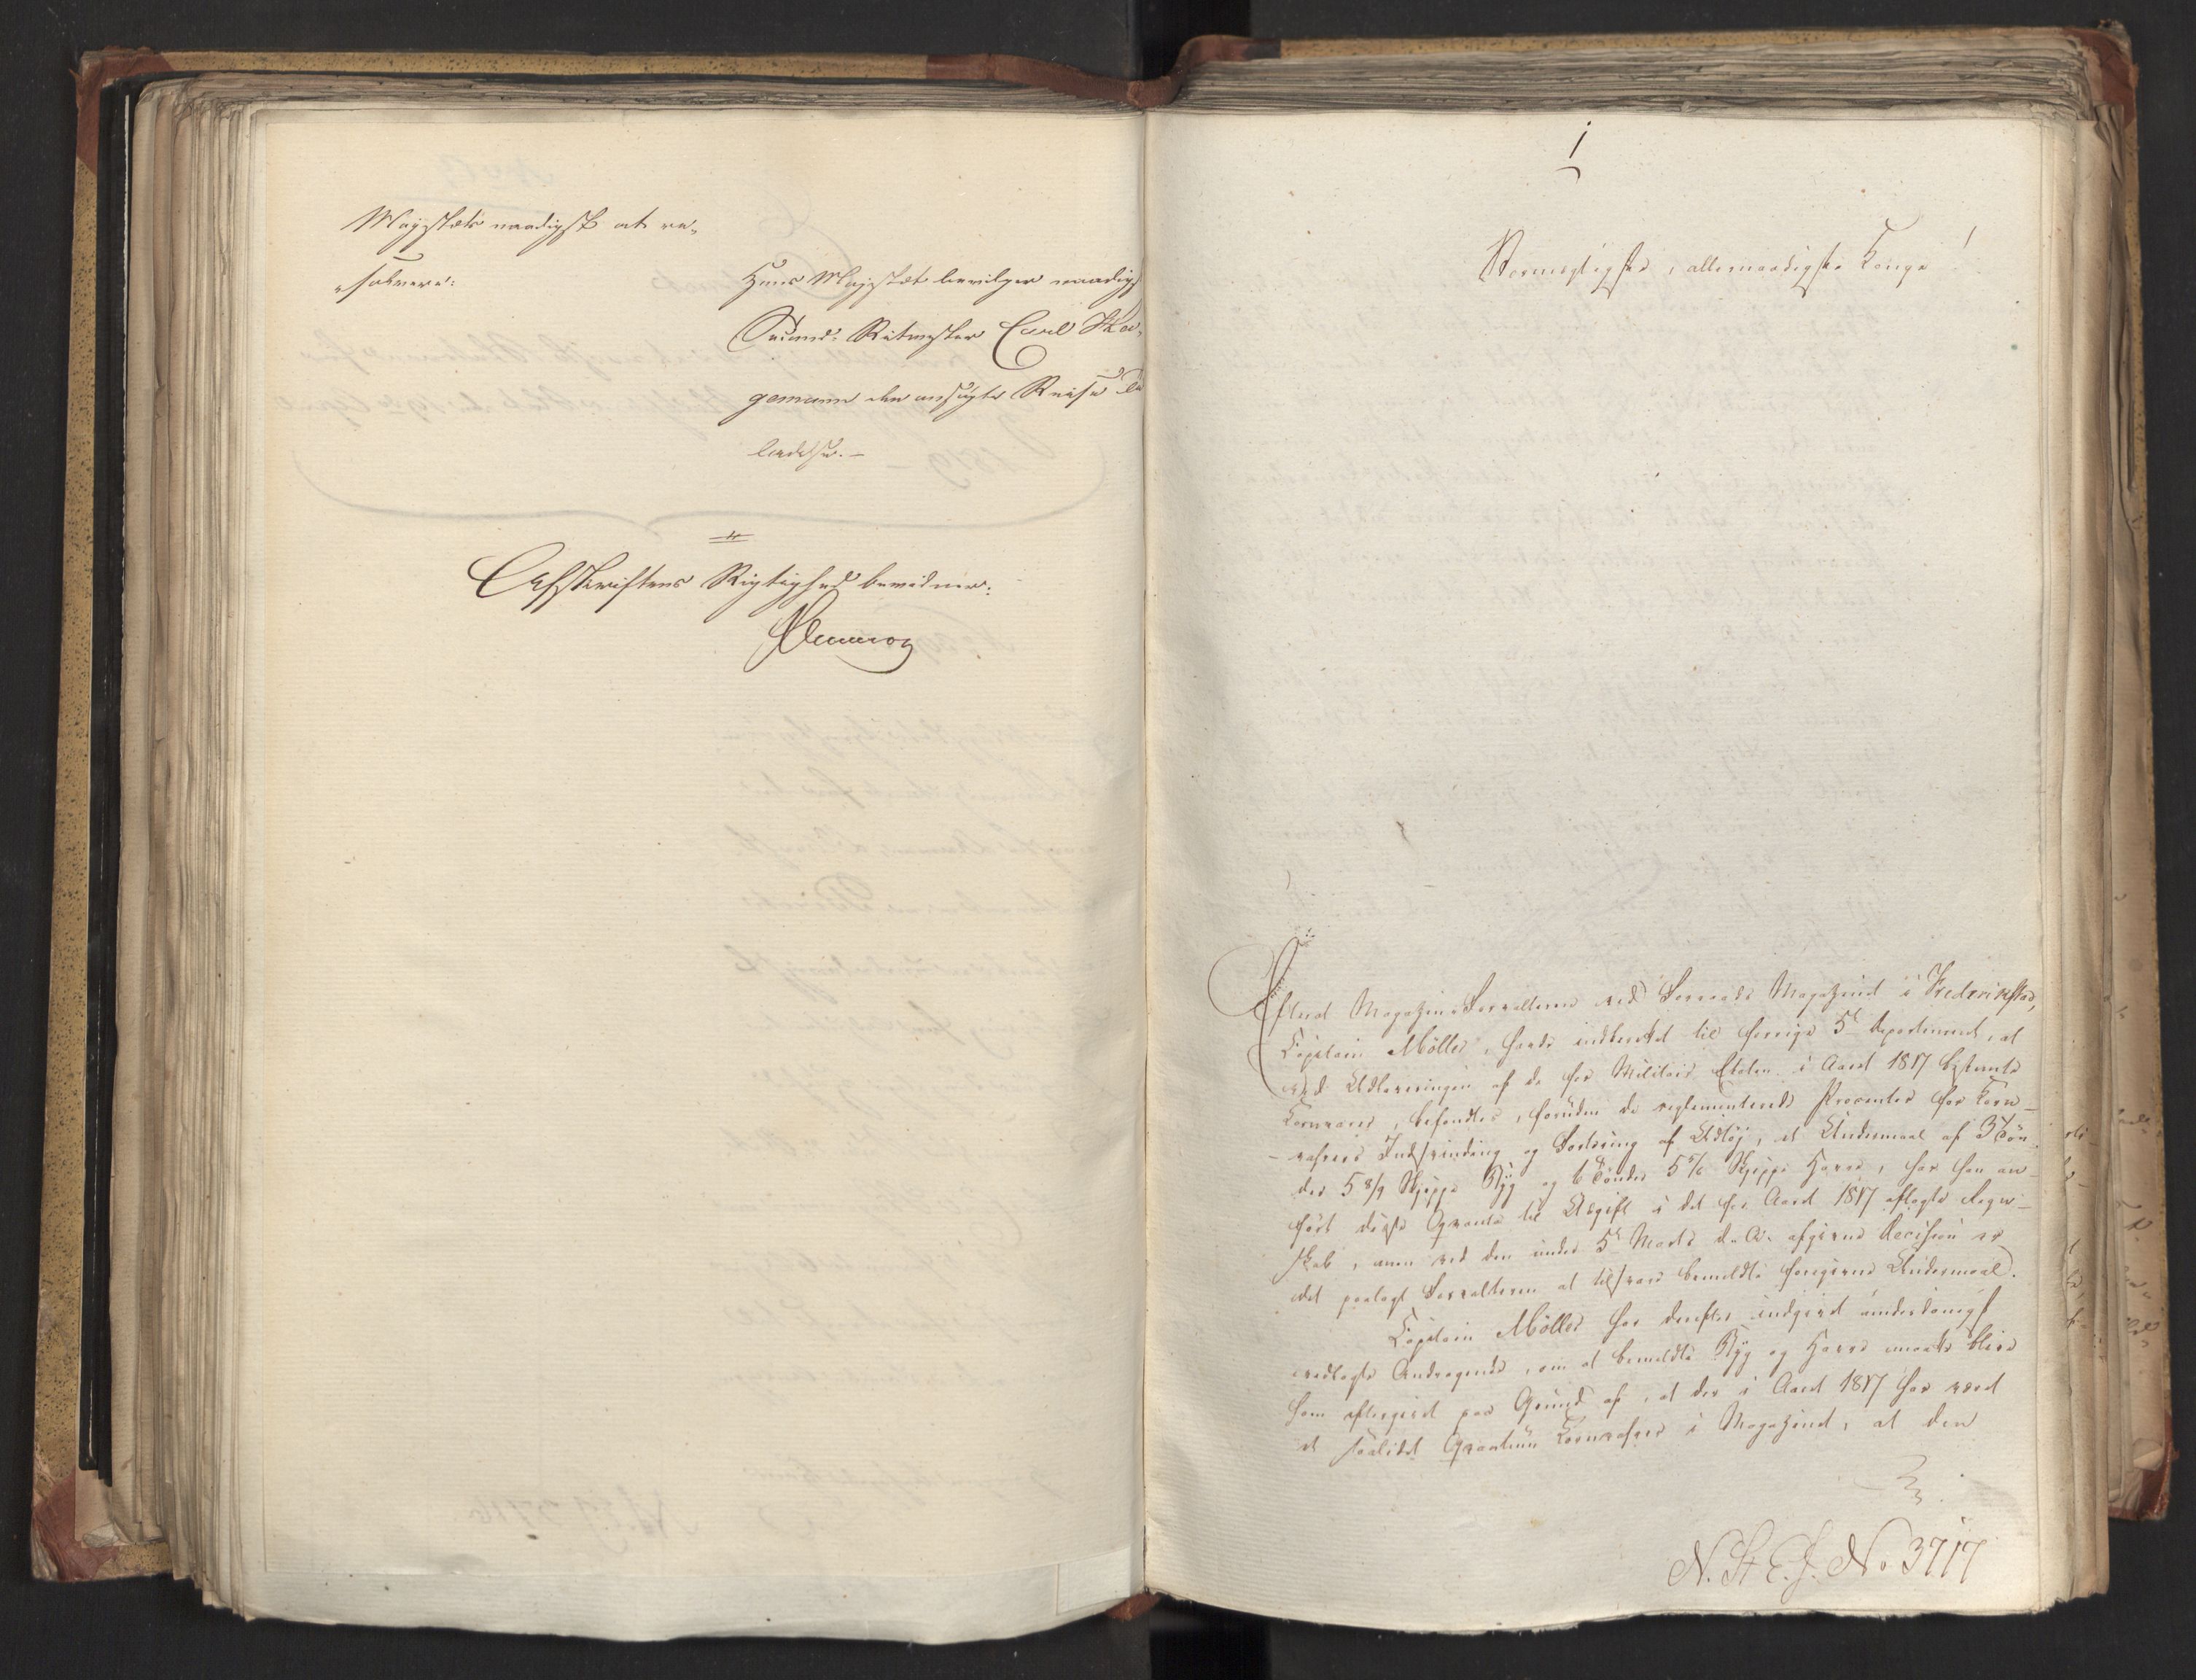 Majestæts naadigst at re-
solvere:
Hans Majestæt bevilger naadigst
Second-Ritmester Carl Ske-
gemann den ansøgte Reise Til-
ladelse. –
Afskriftens Rigtighed bevidner:
1
Stormægtigste, allernaadigste Konge!
Efterat Magazin Forvalteren ved Forraads Magazinet i Frederikstad,
Capitain Møller, havde indberettet til forrige 5te Departement, at
ved Udleveringen af de for Militair Etaten i Aaret 1817 bestemte
Kornvarer, befandtes, foruden de reglementerede Procenter for Korn-
vahrers Indsvinding og Fortæring af Udtøj, et Undermaal af 3 Tøn-
der 5 8/9 Skjeppe Ryg og 6 Tønder 5 5/6 Skjeppe Havre, har han an-
ført disse Qvanta til Udgift i det for Aaret 1817 aflagte Regn-
skab, men ved den under 5te Marts d. A. afgivne Decision er
det paalagt Forvalteren at tilsvare bemeldte foregivne Undermaal.
Capitain Møller har derefter indgivet underdanigst
vedlagte Andragende, om at bemeldte Ryg og Havre maatte blive
ham eftergivet paa Grund af, at der i Aaret 1817 har været
et saa lidet Qvantum Kornvahrer i Magazinet, at den
N. St. E. J. No. 3717